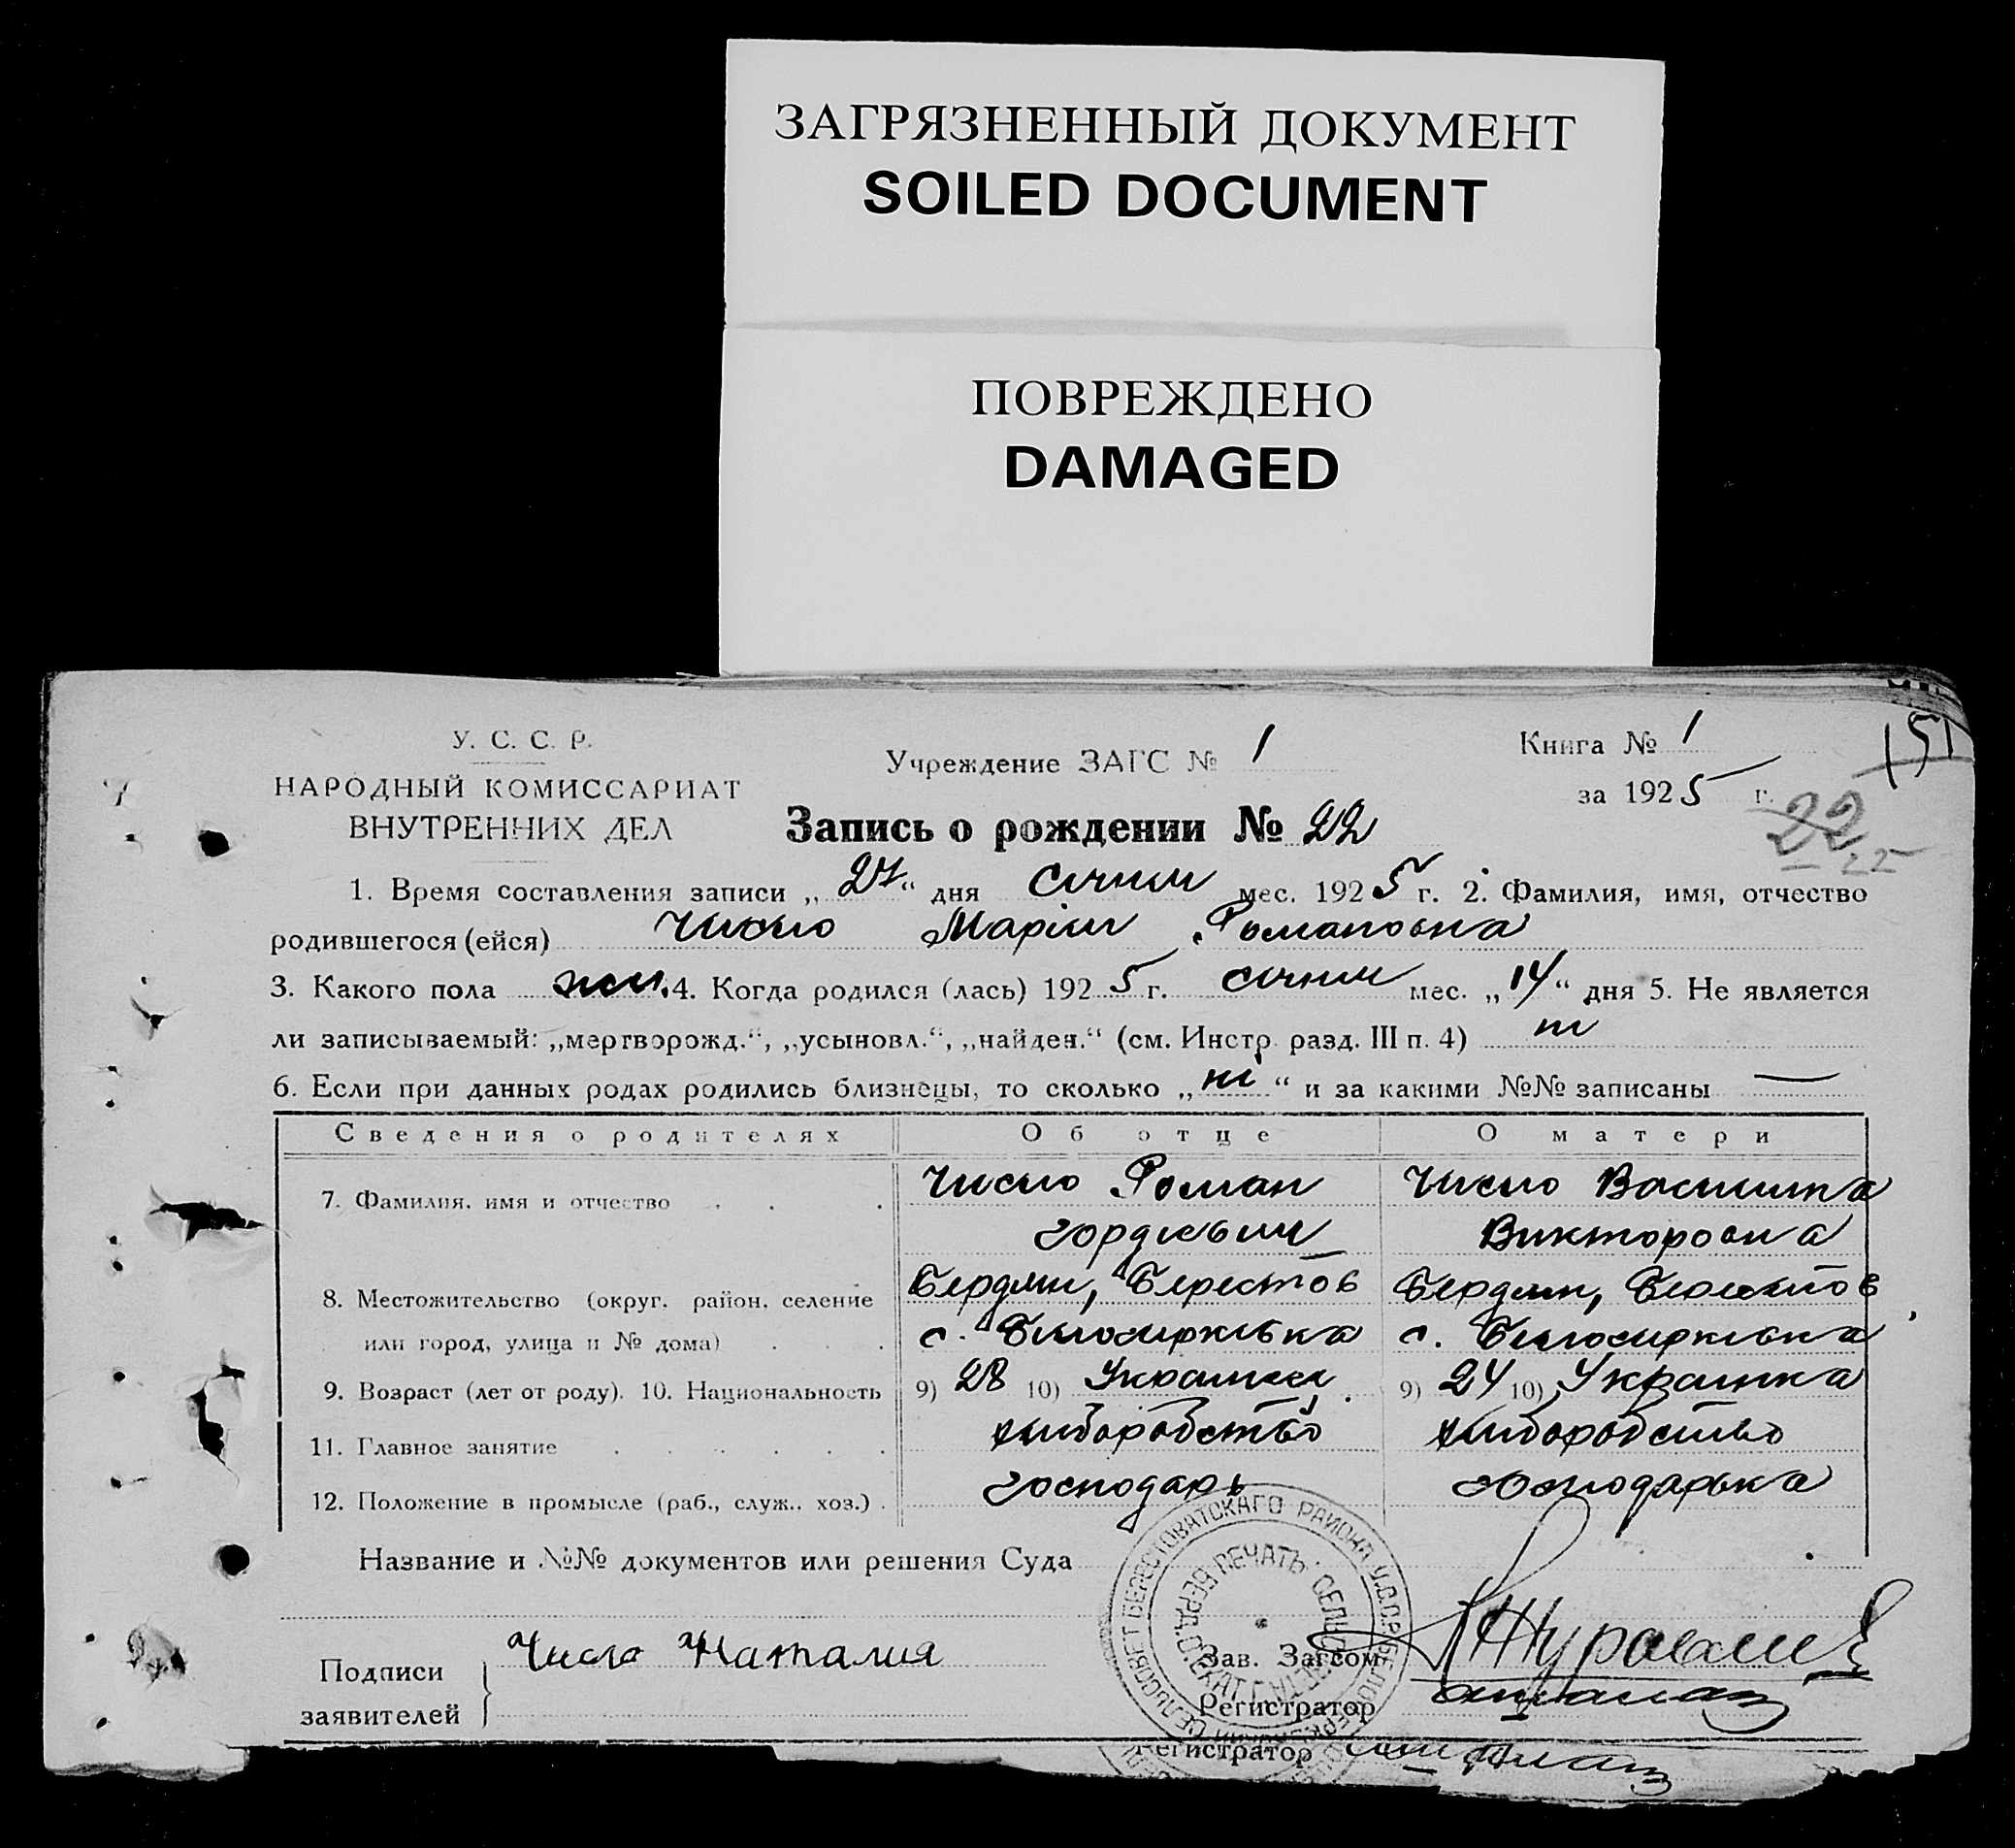 ЗАГРЯЗНЕННЫЙ ДОКУМЕНТ
SOILED DOCUMENT
ПОВРЕЖДЕНО
DAMAGED
У. С. С. Р.
НАРОДНЫЙ КОМИССАРИАТ
ВНУТРЕННИХ ДЕЛ
Учреждение ЗАГС № 1
Книга № 1
151
за 1925 г.
22
Запись о рождении № 22
1. Время составления записи „27“ дня січня мес. 1925 г. 2. Фамилия, имя, отчество
родившегося (ейся) Число Марія Романовна
3. Какого пола жін. 4. Когда родился (лась) 1925 г. січня мес. „14“ дня 5. Не является
ли записываемый: „мертворожд.“, „усыновл.“, „найден.“ (см. Инстр. разд. III п. 4) ні
6. Если при данных родах родились близнецы, то сколько „ні“ и за какими №№ записаны —
Сведения о родителях Об отце О матери
7. Фамилия, имя и отчество Число Роман Число Василина
Гордієвич Викторовна
8. Местожительство (округ, район, селение Бердян, Берестов Бердян, Берестов
или город, улица и № дома) с. Білоцирківка с. Білоцирківка
9. Возраст (лет от роду). 10. Национальность 9) 28 10) Українец 9) 24 10) Українка
11. Главное занятие хліборобство хліборобство
12. Положение в промысле (раб., служ., хоз.) господарь господарька
Название и №№ документов или решения Суда
БЕРЕСТОВАТСКАГО РАЙОНА У.С.С.Р.
ПЕЧАТЬ
Подписи
заявителей
Число Наталия
Зав. Загсом
Регистратор
Регистратор